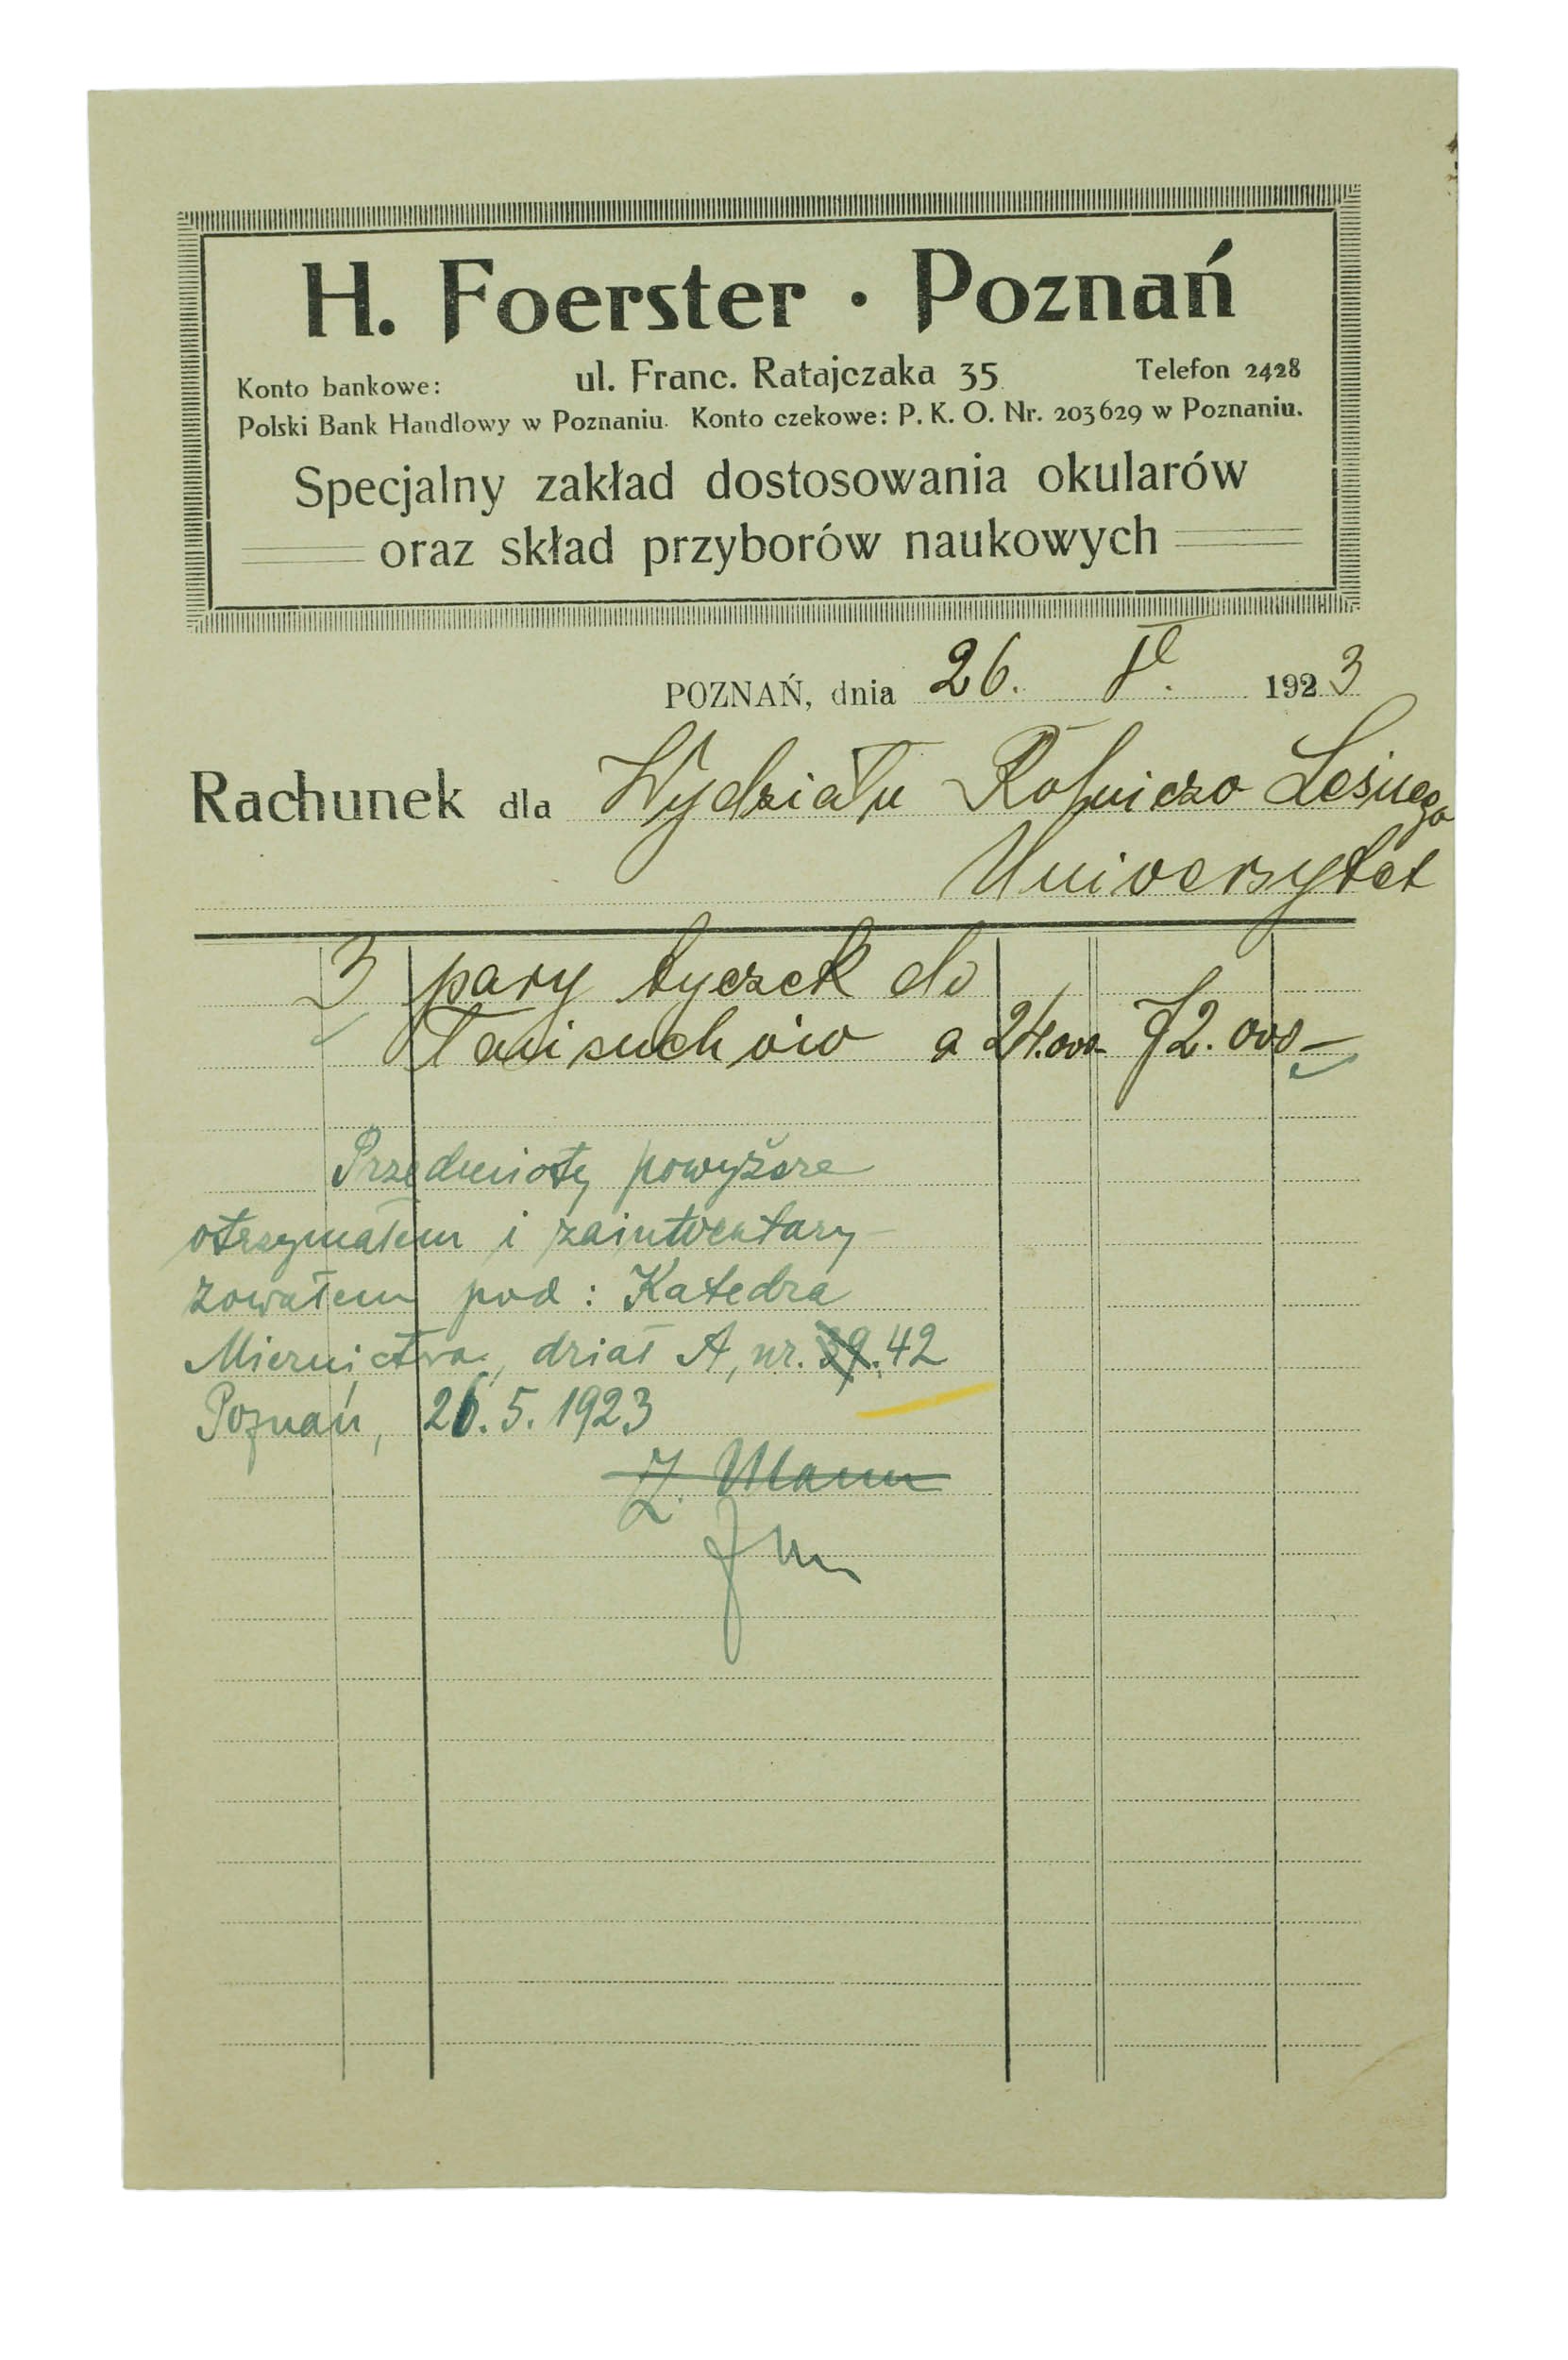 H. Foerster · Poznań
Konto bankowe: ul. Franc. Ratajczaka 35 Telefon 2428
Polski Bank Handlowy w Poznaniu. Konto czekowe: P. K. O. Nr. 203629 w Poznaniu.
Specjalny zakład dostosowania okularów
oraz skład przyborów naukowych
POZNAŃ, dnia 26. V. 1923
Rachunek dla Wydziału Rolniczo Leśnego
Uniwersytet
3 pary tyczek do
a 24.000- 72.000-
Przedmioty powyższe
otrzymałem i zainwentary-
zowałem pod: Katedra
Miernictwa, dział A, nr. 39. 42
Poznań, 26.5.1923